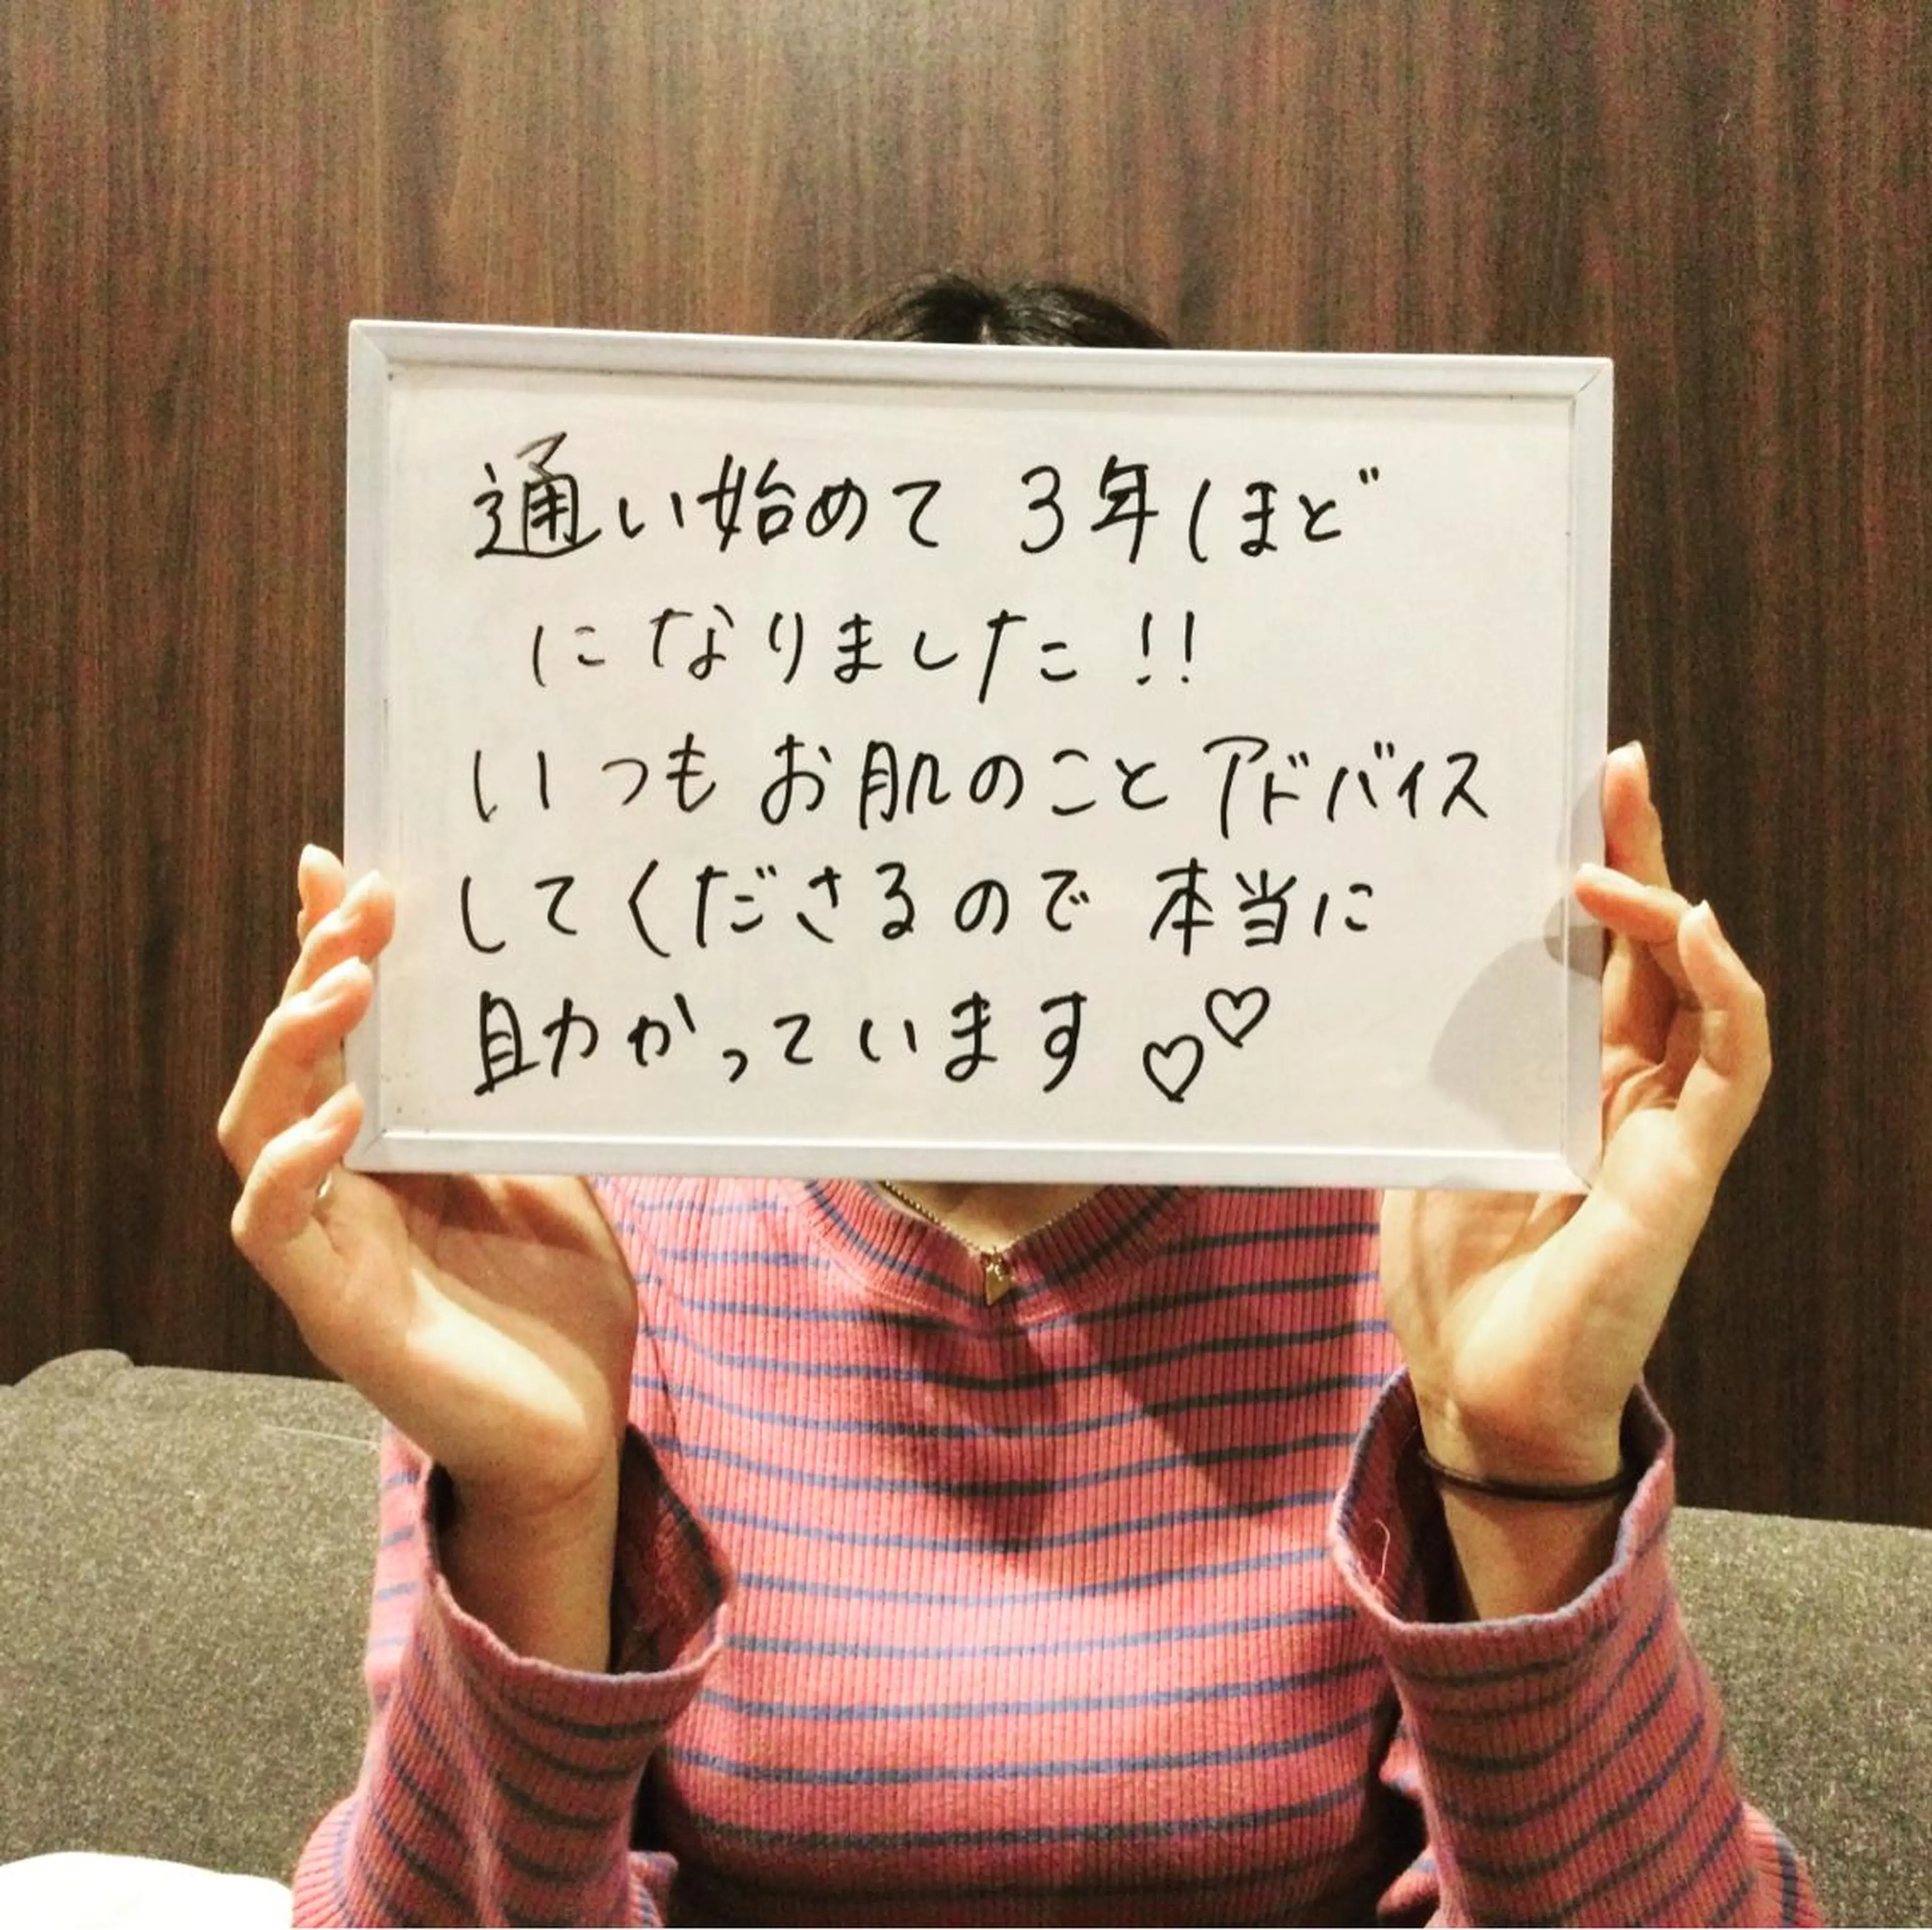 通い始めて 3年ほど
になりました!!
いつも お肌のこと アドバイス
してくださるので 本当に
助かっています♡♡